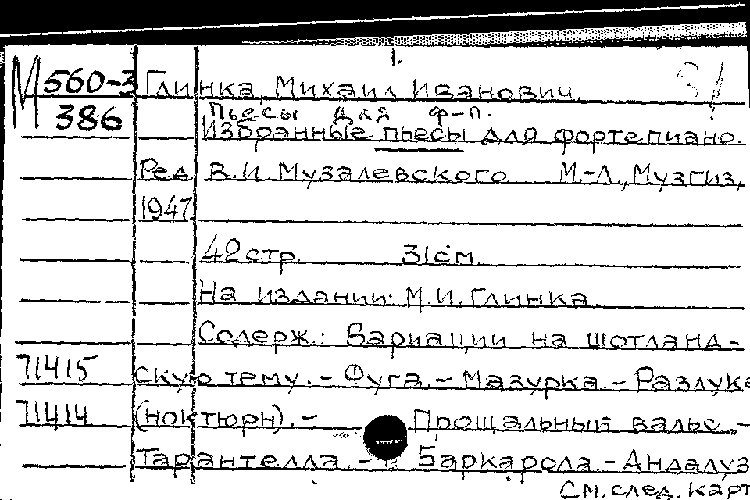 1.
М 560-3 Глинка, Михаил Иванович.
386 Пьесы для ф-п.
Избранные пьесы для фортепиано.
Ред. В.И. Музалевского М.-Л., Музгиз,
1947
42 стр. 31 см.
На издании: М.И. Глинка
Содерж.: Вариации на шотланд-
71415 скую тему. - Фуга. - Мазурка. - Разлука
71414 (ноктюрн). - Прощальный вальс. -
Тарантелла. - Баркарола - Андалуз
См. след. карт